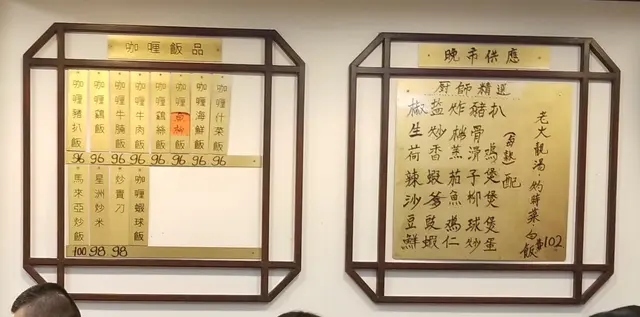 咖喱飯品
咖喱豬扒飯
咖喱鷄飯
咖喱牛腩飯
咖喱牛肉飯
咖喱鷄絲飯
咖喱 飯
咖喱海鮮飯
咖喱什菜飯
96 96 96 96 96 96 96 96
馬來亞炒飯
星洲炒米
炒賣刀
咖喱蝦球飯
100 98 98
晚市供應
廚師精選
椒盐炸豬扒
生炒排骨
荷香蒸滑鷄
辣蝦茄子煲
沙爹魚柳煲
豆豉鷄球煲
鮮蝦仁炒蛋
(每款)配
老火靚湯·灼時菜·白飯
$102